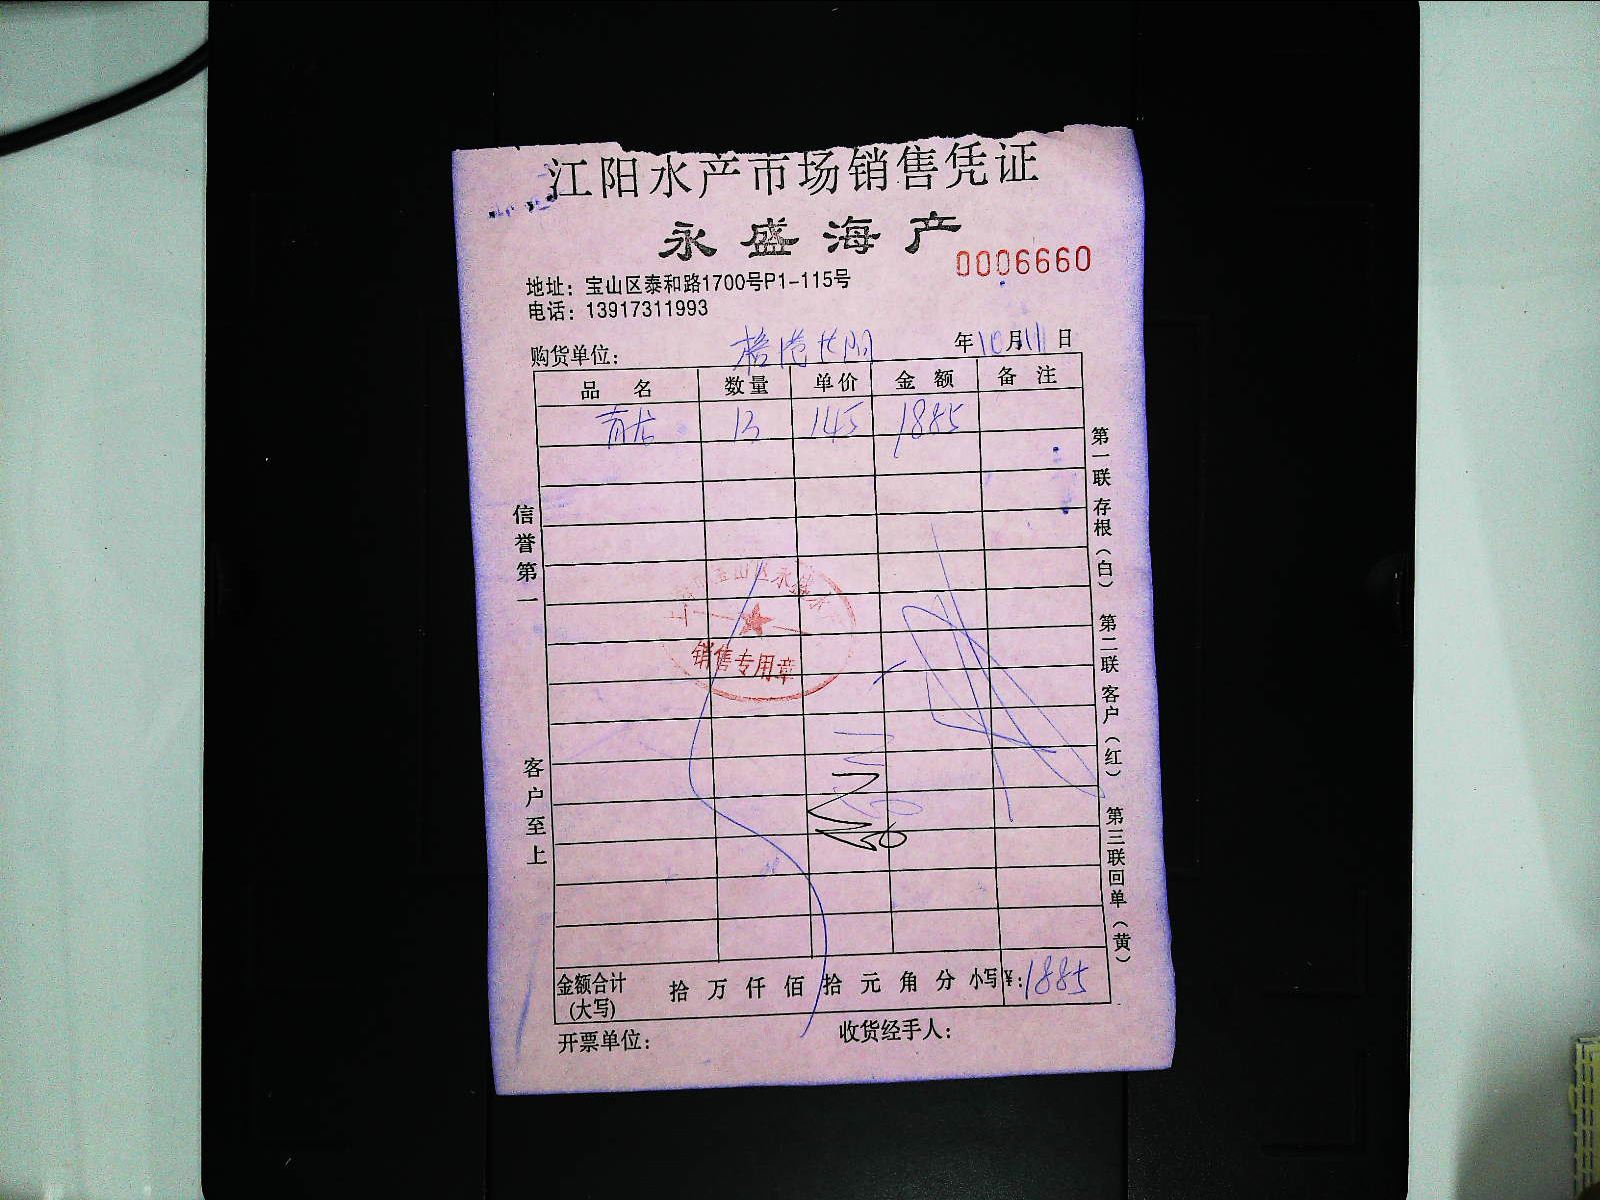 江阳水产市场销售凭证
永盛海产
0006660
地址：宝山区泰和路1700号P1-115号
电话：13917311993
购货单位： 年10月11日
品名 数量 单价 金额 备注
青龙 13 145 1885
信誉第一
客户至上
第一联 存根（白） 第二联 客户（红） 第三联回单（黄）
宝山区永盛水
销售专用章
金额合计(大写) 拾 万 仟 佰 拾 元 角 分 小写¥:1885
开票单位： 收货经手人：